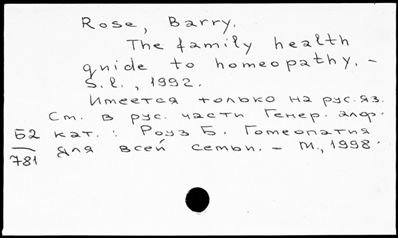 Rose, Barry.
The family health
guide to homeopathy. –
S.l., 1992.
Имеется только на рус. яз.
См. в рус. части Генер. алф.
Б2 кат. : Роуз Б. Гомеопатия
781 для всей семьи. – М., 1998.